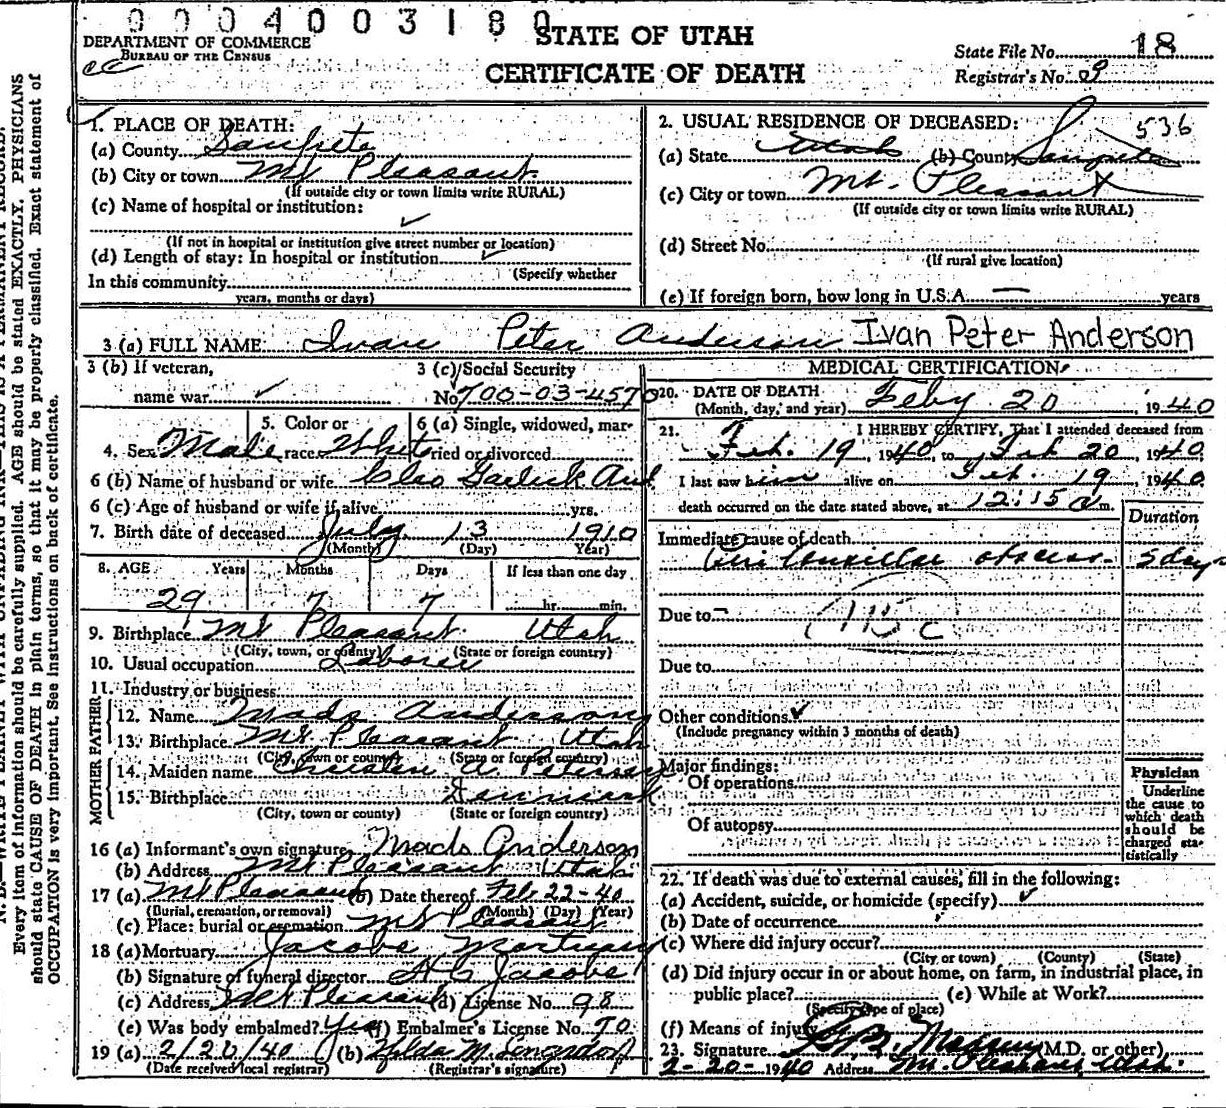 0004003180
STATE OF UTAH
CERTIFICATE OF DEATH
DEPARTMENT OF COMMERCE
BUREAU OF THE CENSUS
State File No. 18
Registrar's No. 9
1. PLACE OF DEATH:
(a) County Sanpete
(b) City or town Mt Pleasant
(If outside city or town limits write RURAL)
(c) Name of hospital or institution:
(If not in hospital or institution give street number or location)
(d) Length of stay: In hospital or institution
(Specify whether
In this community
years, months or days)
2. USUAL RESIDENCE OF DECEASED: 536
(a) State Utah (b) County Sanpete
(c) City or town Mt. Pleasant
(If outside city or town limits write RURAL)
(d) Street No.
(If rural give location)
(e) If foreign born, how long in U.S.A. — years
3 (a) FULL NAME Ivan Peter Anderson Ivan Peter Anderson
3 (b) If veteran, name war
3 (c) Social Security No. 700-03-4570
4. Sex Male 5. Color or race White 6 (a) Single, widowed, married or divorced
6 (b) Name of husband or wife Cleo Garlick And
6 (c) Age of husband or wife if alive yrs.
7. Birth date of deceased July 13 1910
(Month) (Day) Year)
8. AGE Years Months Days If less than one day
29 7 7 hr. min.
9. Birthplace Mt Pleasant Utah
(City, town, or county) (State or foreign country)
10. Usual occupation Laborer
11. Industry or business
FATHER
12. Name Mads Anderson
13. Birthplace Mt Pleasant Utah
(City, town or county) (State or foreign country)
MOTHER
14. Maiden name A. Petersen
15. Birthplace Denmark
(City, town or county) (State or foreign country)
16 (a) Informant's own signature Mads Anderson
(b) Address Mt Pleasant Utah
17 (a) Mt Pleasant (b) Date thereof Feb 22-40
(Burial, cremation, or removal) (Month) (Day) (Year)
(c) Place: burial or cremation Mt Pleasant
18 (a) Mortuary Jacobs Mortuary
(b) Signature of funeral director A C Jacobs
(c) Address Mt Pleasant (d) License No. 98
(e) Was body embalmed? Yes (f) Embalmer's License No. 70
19 (a) 2/20/40 (b) Hilda M.
(Date received local registrar) (Registrar's signature)
MEDICAL CERTIFICATION
20. DATE OF DEATH
(Month, day, and year) Feby 20, 1940
21. I HEREBY CERTIFY, That I attended deceased from
Feb. 19, 1940, to Feb 20, 1940
I last saw him alive on Feb. 19, 1940
death occurred on the date stated above, at 12:15 a m.
Duration
Immediate cause of death
Peri tonsillar abscess. 5 days
Due to
115c
Due to
Other conditions
(Include pregnancy within 3 months of death)
Major findings:
Of operations
Of autopsy
Physician
Underline
the cause to
which death
should be
charged sta-
tistically
22. If death was due to external causes, fill in the following:
(a) Accident, suicide, or homicide (specify)
(b) Date of occurrence
(c) Where did injury occur?
(City or town) (County) (State)
(d) Did injury occur in or about home, on farm, in industrial place, in
public place? (e) While at Work?
(Specify type of place)
(f) Means of injury
23. Signature (M.D. or other)
2-20-1940 Address Mt. Pleasant, Utah.
Every item of information should be carefully supplied. AGE should be stated EXACTLY. PHYSICIANS
should state CAUSE OF DEATH in plain terms, so that it may be properly classified. Exact statement of
OCCUPATION is very important. See instructions on back of certificate.